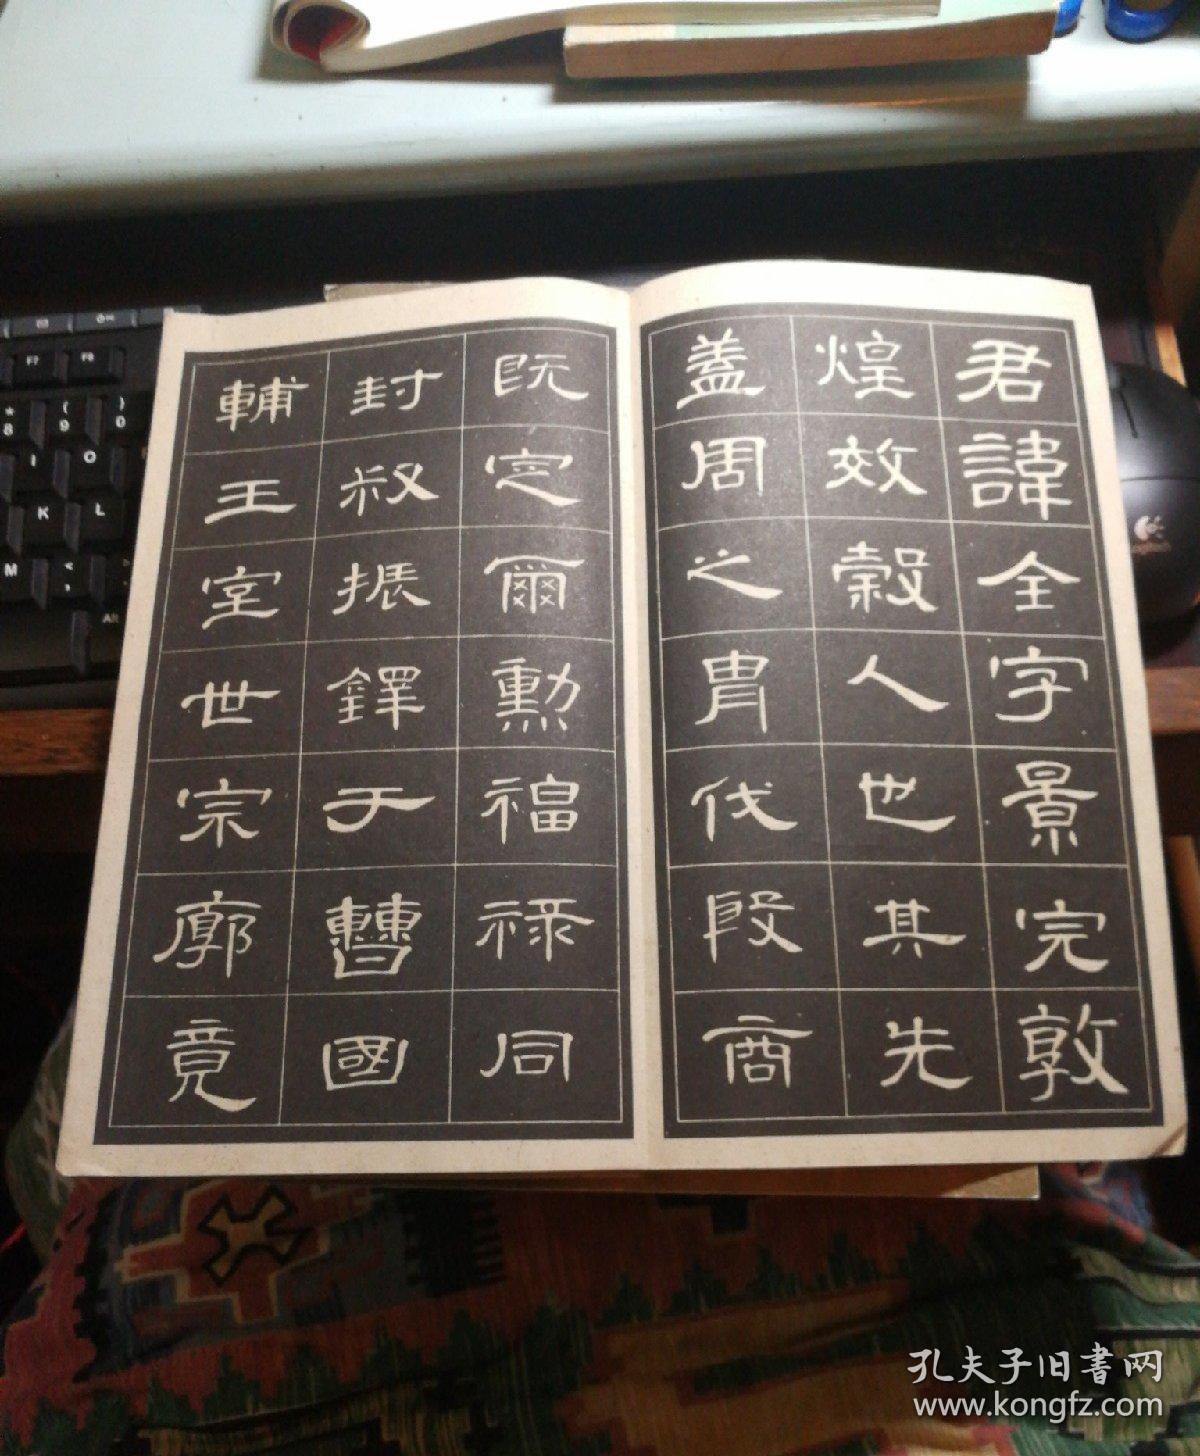 君諱全字景完敦
煌效穀人也其先
蓋周之冑伐殷商
既定爾勳福祿同
封叔振鐸于曹國
輔王室世宗廓竟
孔夫子旧書网
www.kongfz.com